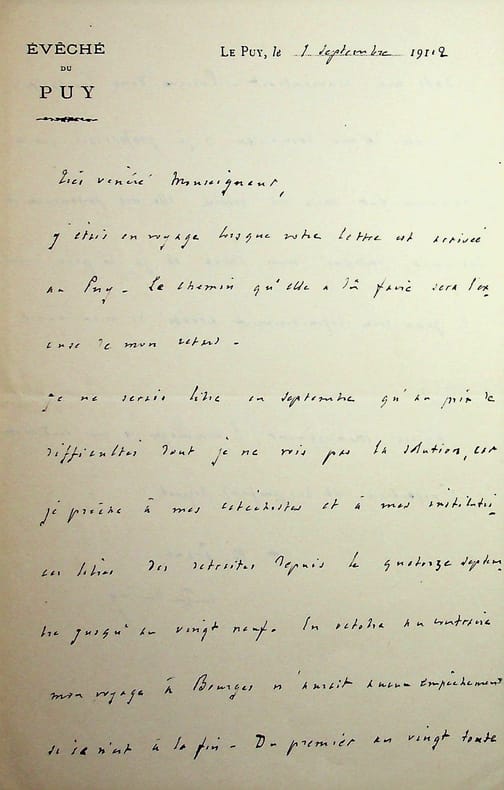 ÉVÊCHÉ
DU
PUY
LE PUY, le 1 septembre 1912
Très vénéré Monseigneur,
j'étais en voyage lorsque votre lettre est arrivée
au Puy - Le chemin qu'elle a dû faire sera l'ex
cuse de mon retard -
je ne serais libre en septembre qu'au prix de
difficultés dont je ne vois pas la solution, car
je prêche à mes catéchistes et à mes institutri
ces libres des retraites depuis le quatorze septem
bre jusqu'au vingt neuf. En octobre au contraire
mon voyage à Bourges n'aurait aucun empêchement
si ce n'est à la fin - Du premier au vingt toute